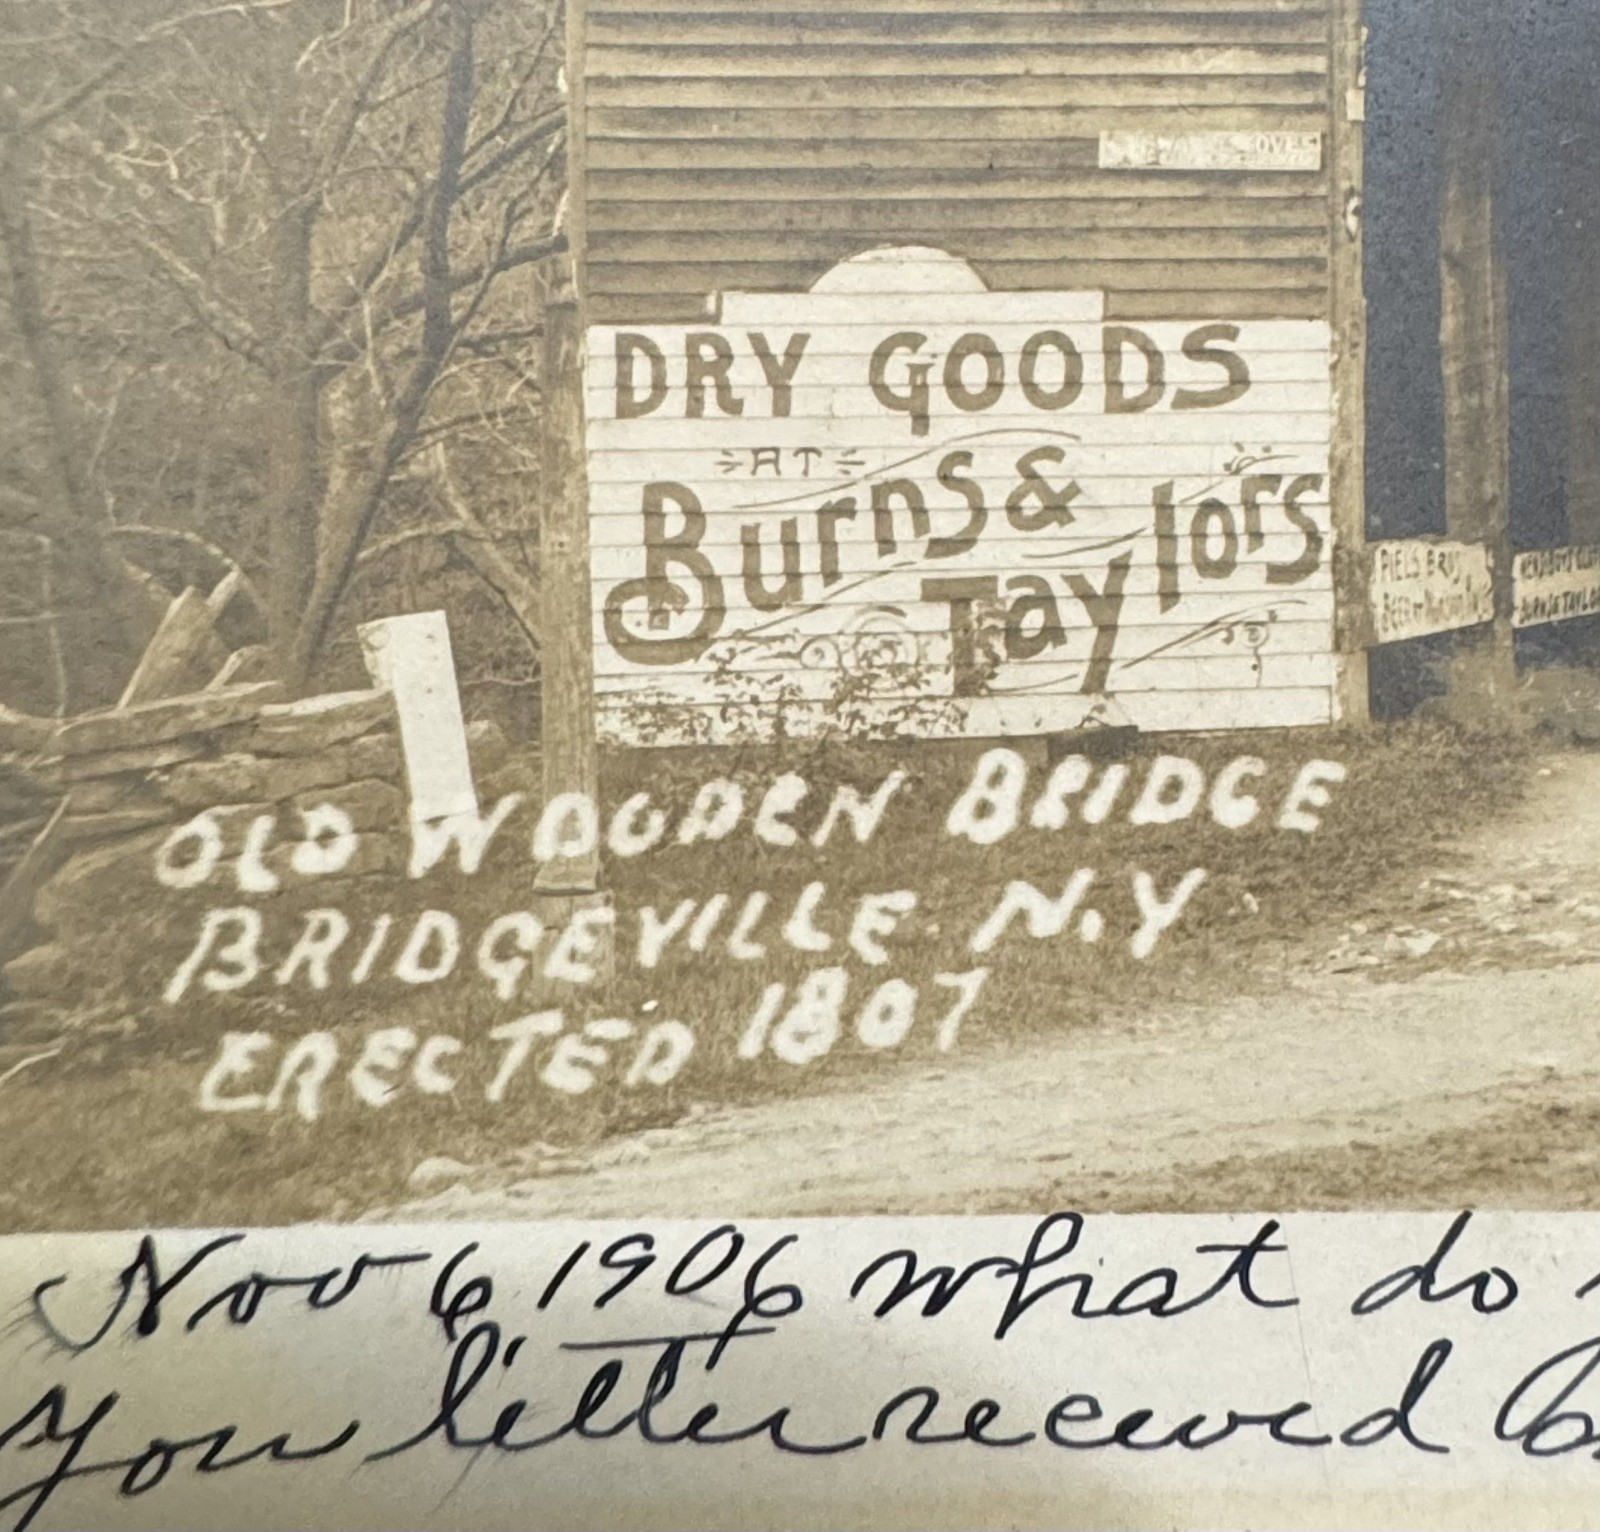 DRY GOODS
AT
Burns &
Taylors
PIELS BROS
BEER
BURNS & TAYLOR
OLD WOODEN BRIDGE
BRIDGEVILLE N.Y
ERECTED 1807
Nov 6 1906 what do
you letter received